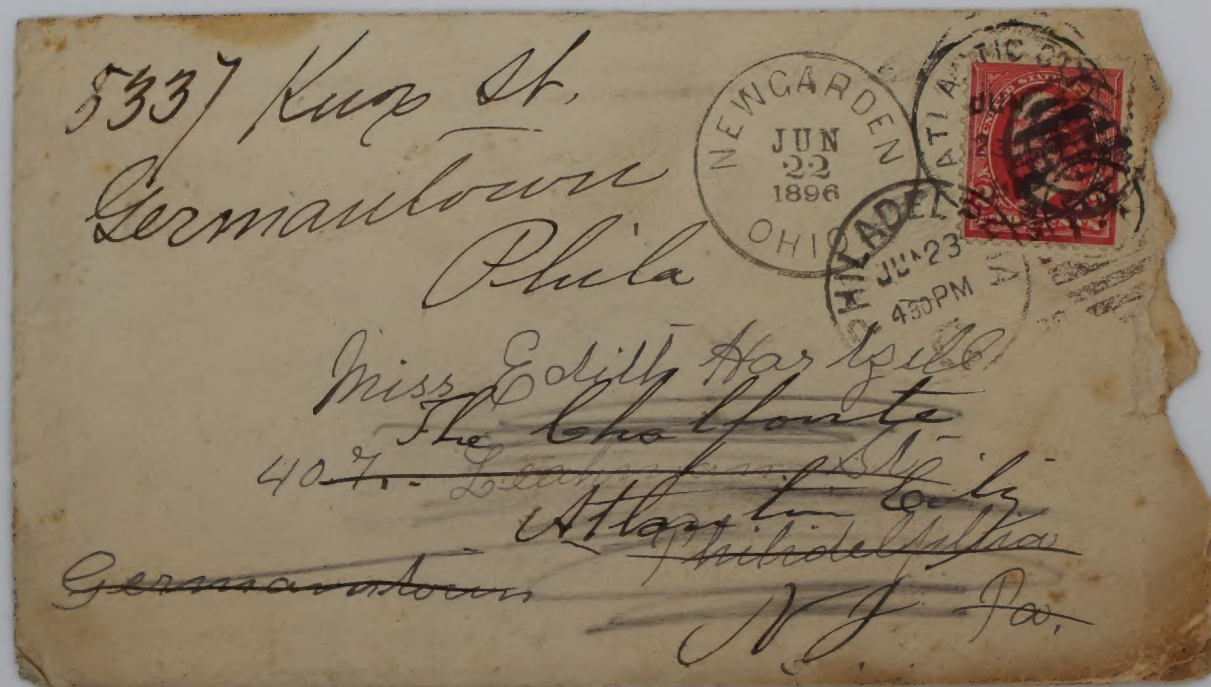 5337 Knox St.
Germantown
Phila
NEWGARDEN
JUN
22
1896
OHIO
ATLANTIC
PHILADEL IA
JUN 23
4 30 PM
Miss Edith Hartzell
The Chalfonte
407 St.
Atlantic City
Philidelphia
Germanstown
N J Pa.